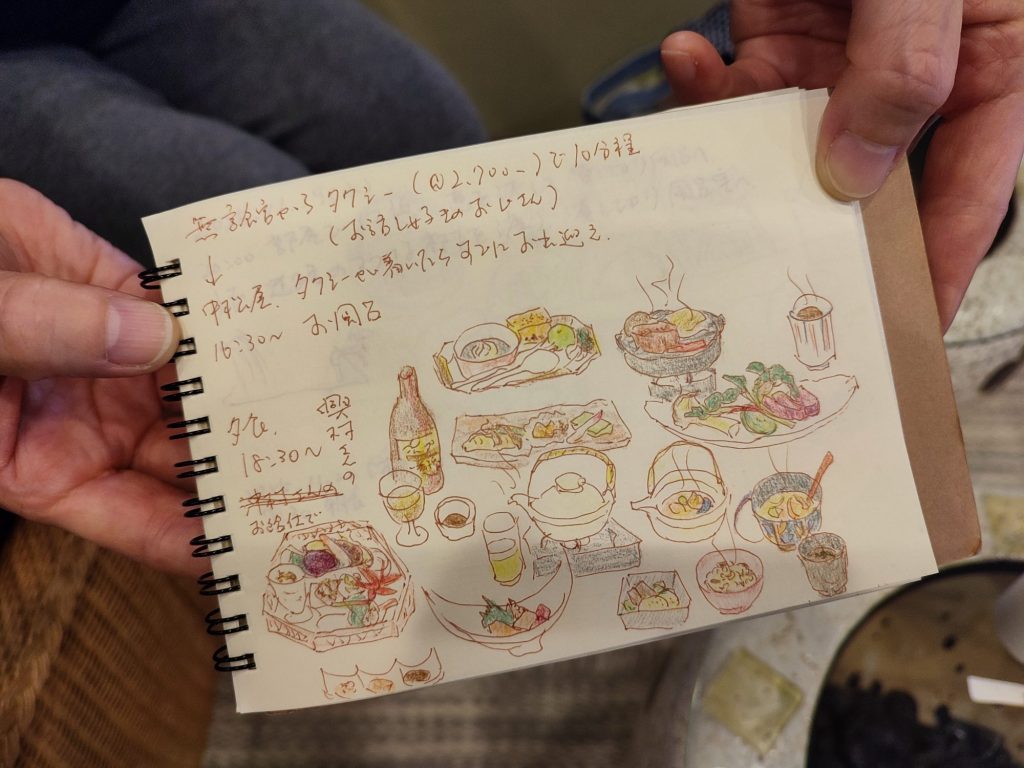 無言館からタクシー(@2,700-)で10分程
(お話しずきのおじさん)
↓
中松屋.タクシーが着いたらすぐにお出迎え.
16:30~ お風呂
夕食.
18:30~
奥村さんの
お給仕で